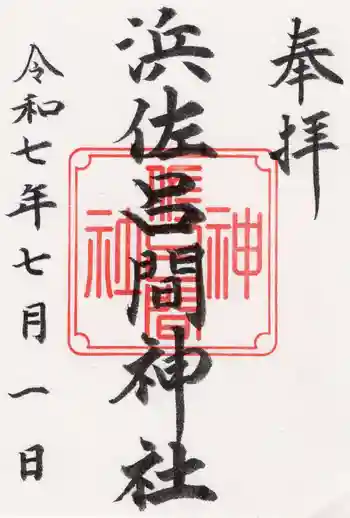 奉拝
浜佐呂間神社
令和七年七月一日